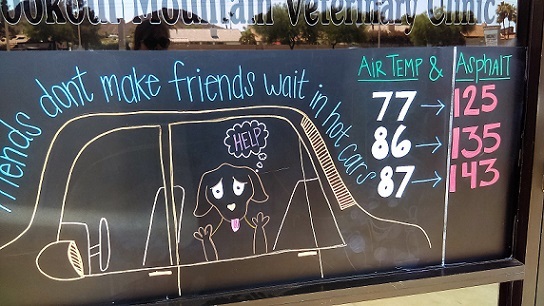 Lookout Mountain Veterinary Clinic
friends dont make friends wait in hot cars
HELP
AIR TEMP & ASPHALT
77 → 125
86 → 135
87 → 143